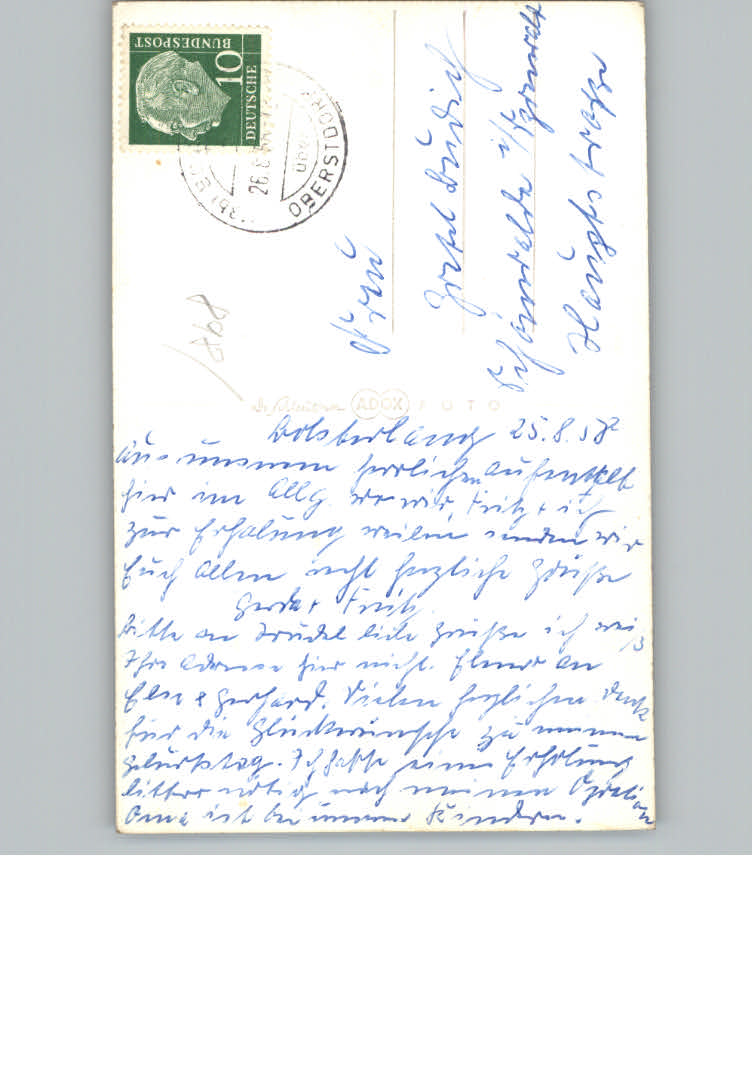 DEUTSCHE
BUNDESPOST
10
26.8
OBERSTDORF
Frau
Schönwalde i/
Hauptstraße
868
ADOX FOTO
Bolsterlang 25.8.58
Aus unserem herrlichen Aufenthalt
hier im Allg. wo wir, Fritz + ich
zur Erholung weilen senden wir
Euch Allen recht herzliche Grüße
Gerda + Fritz.
Bitte an Trudel liebe Grüße ich weiß
Ihre Adresse hier nicht. Ebenso an
Else & Gerhard. Vielen herzlichen Dank
für die Glückwünsche zu meinem
Geburtstag. Ich hatte eine Erholung
bitter nötig nach meiner Operation
Oma ist bei unseren Kindern.